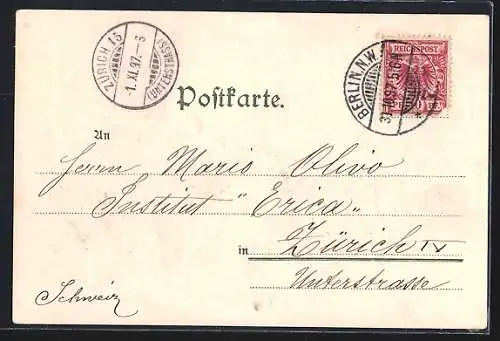 ZÜRICH 15
-1.XI.97.-5
(UNTERSTRASS)
BERLIN N.W.
31.10.97.5-6N.
REICHSPOST
Postkarte.
An
Herrn Mario Olivo
Institut "Erica"
in Zürich IV
Unterstrasse
Schweiz